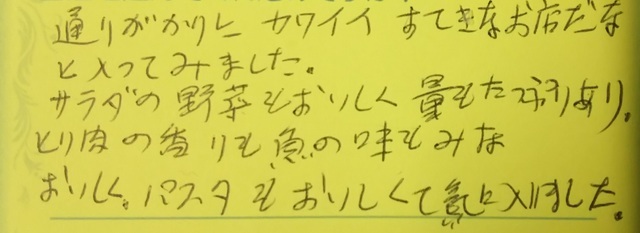 通りがかりに カワイイ すてきなお店だな
と入ってみました。
サラダの 野菜もおいしく 量もたっぷりあり。
とり肉の香りも魚の味もみな
おいしく。パスタも おいしくて気に入りました。